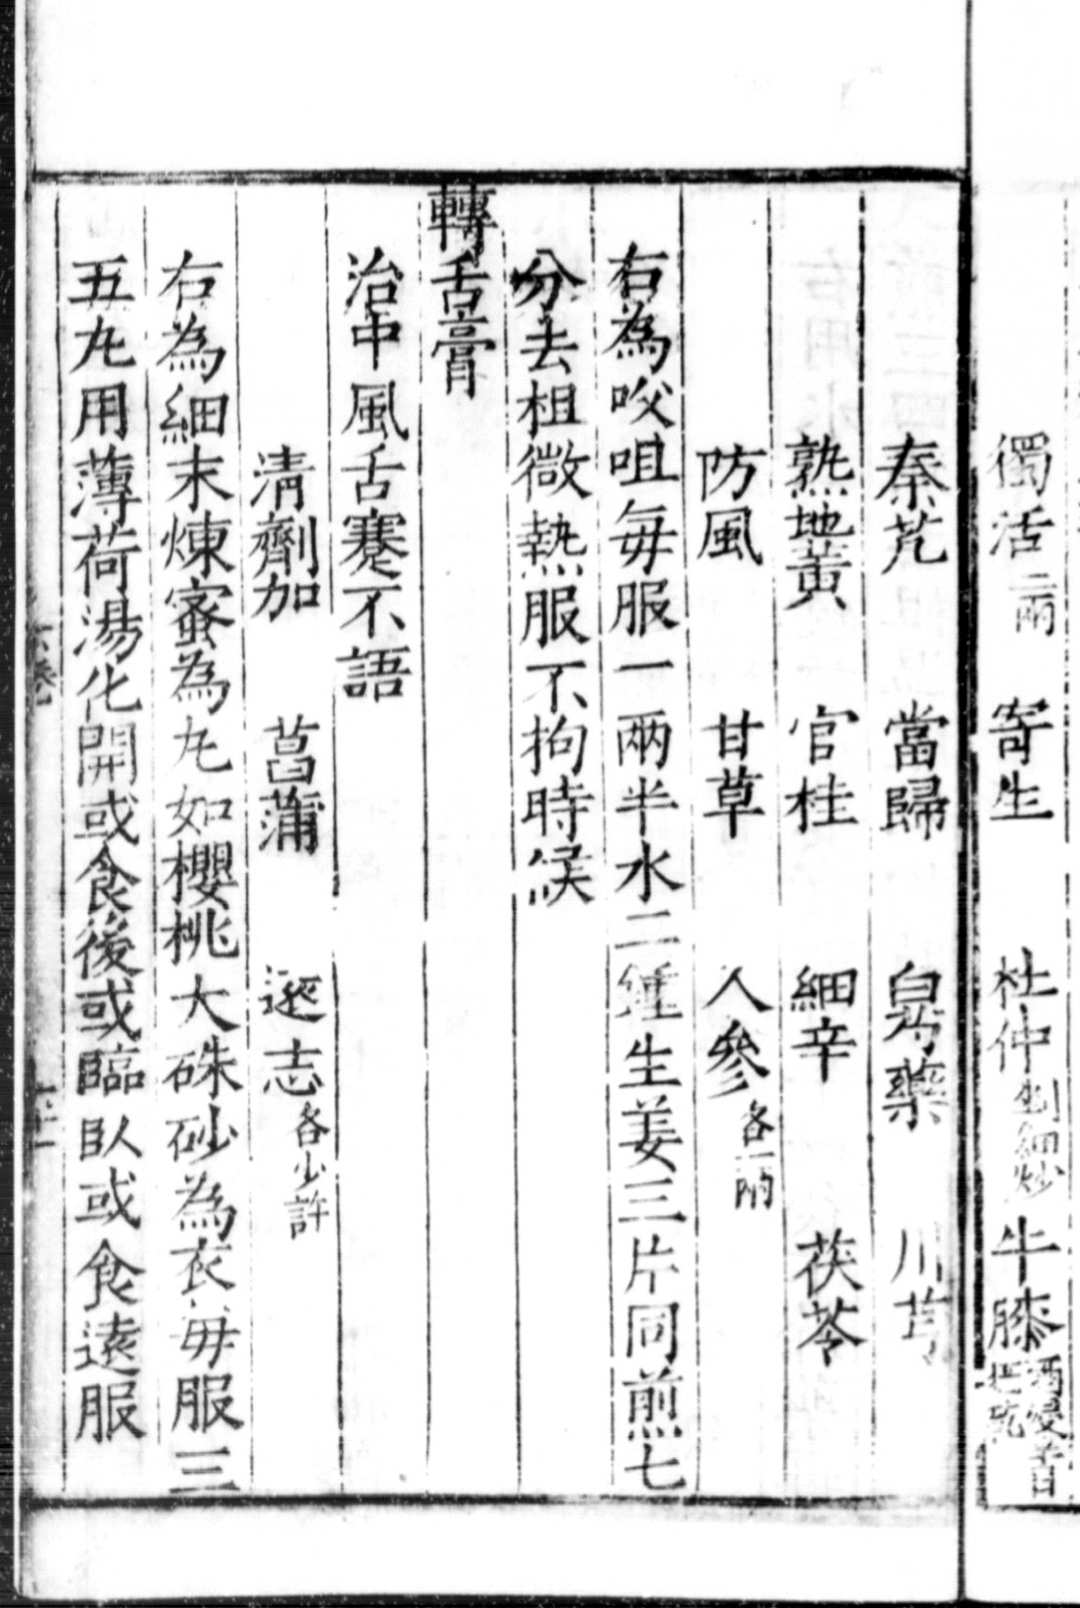 獨活二兩 寄生 杜仲剉細炒 牛膝酒浸
秦芃 當歸 白芍藥 川芎
熟地黃 官桂 細辛 茯苓
防風 甘草 人參各一兩
右為㕮咀每服一兩半水二鍾生姜三片同煎七
分去柤微熱服不拘時候
轉舌膏
治中風舌蹇不語
清劑加 菖蒲 遠志各少許
右為細末煉蜜為丸如櫻桃大硃砂為衣每服三
五丸用薄荷湯化開或食後或臨臥或食遠服